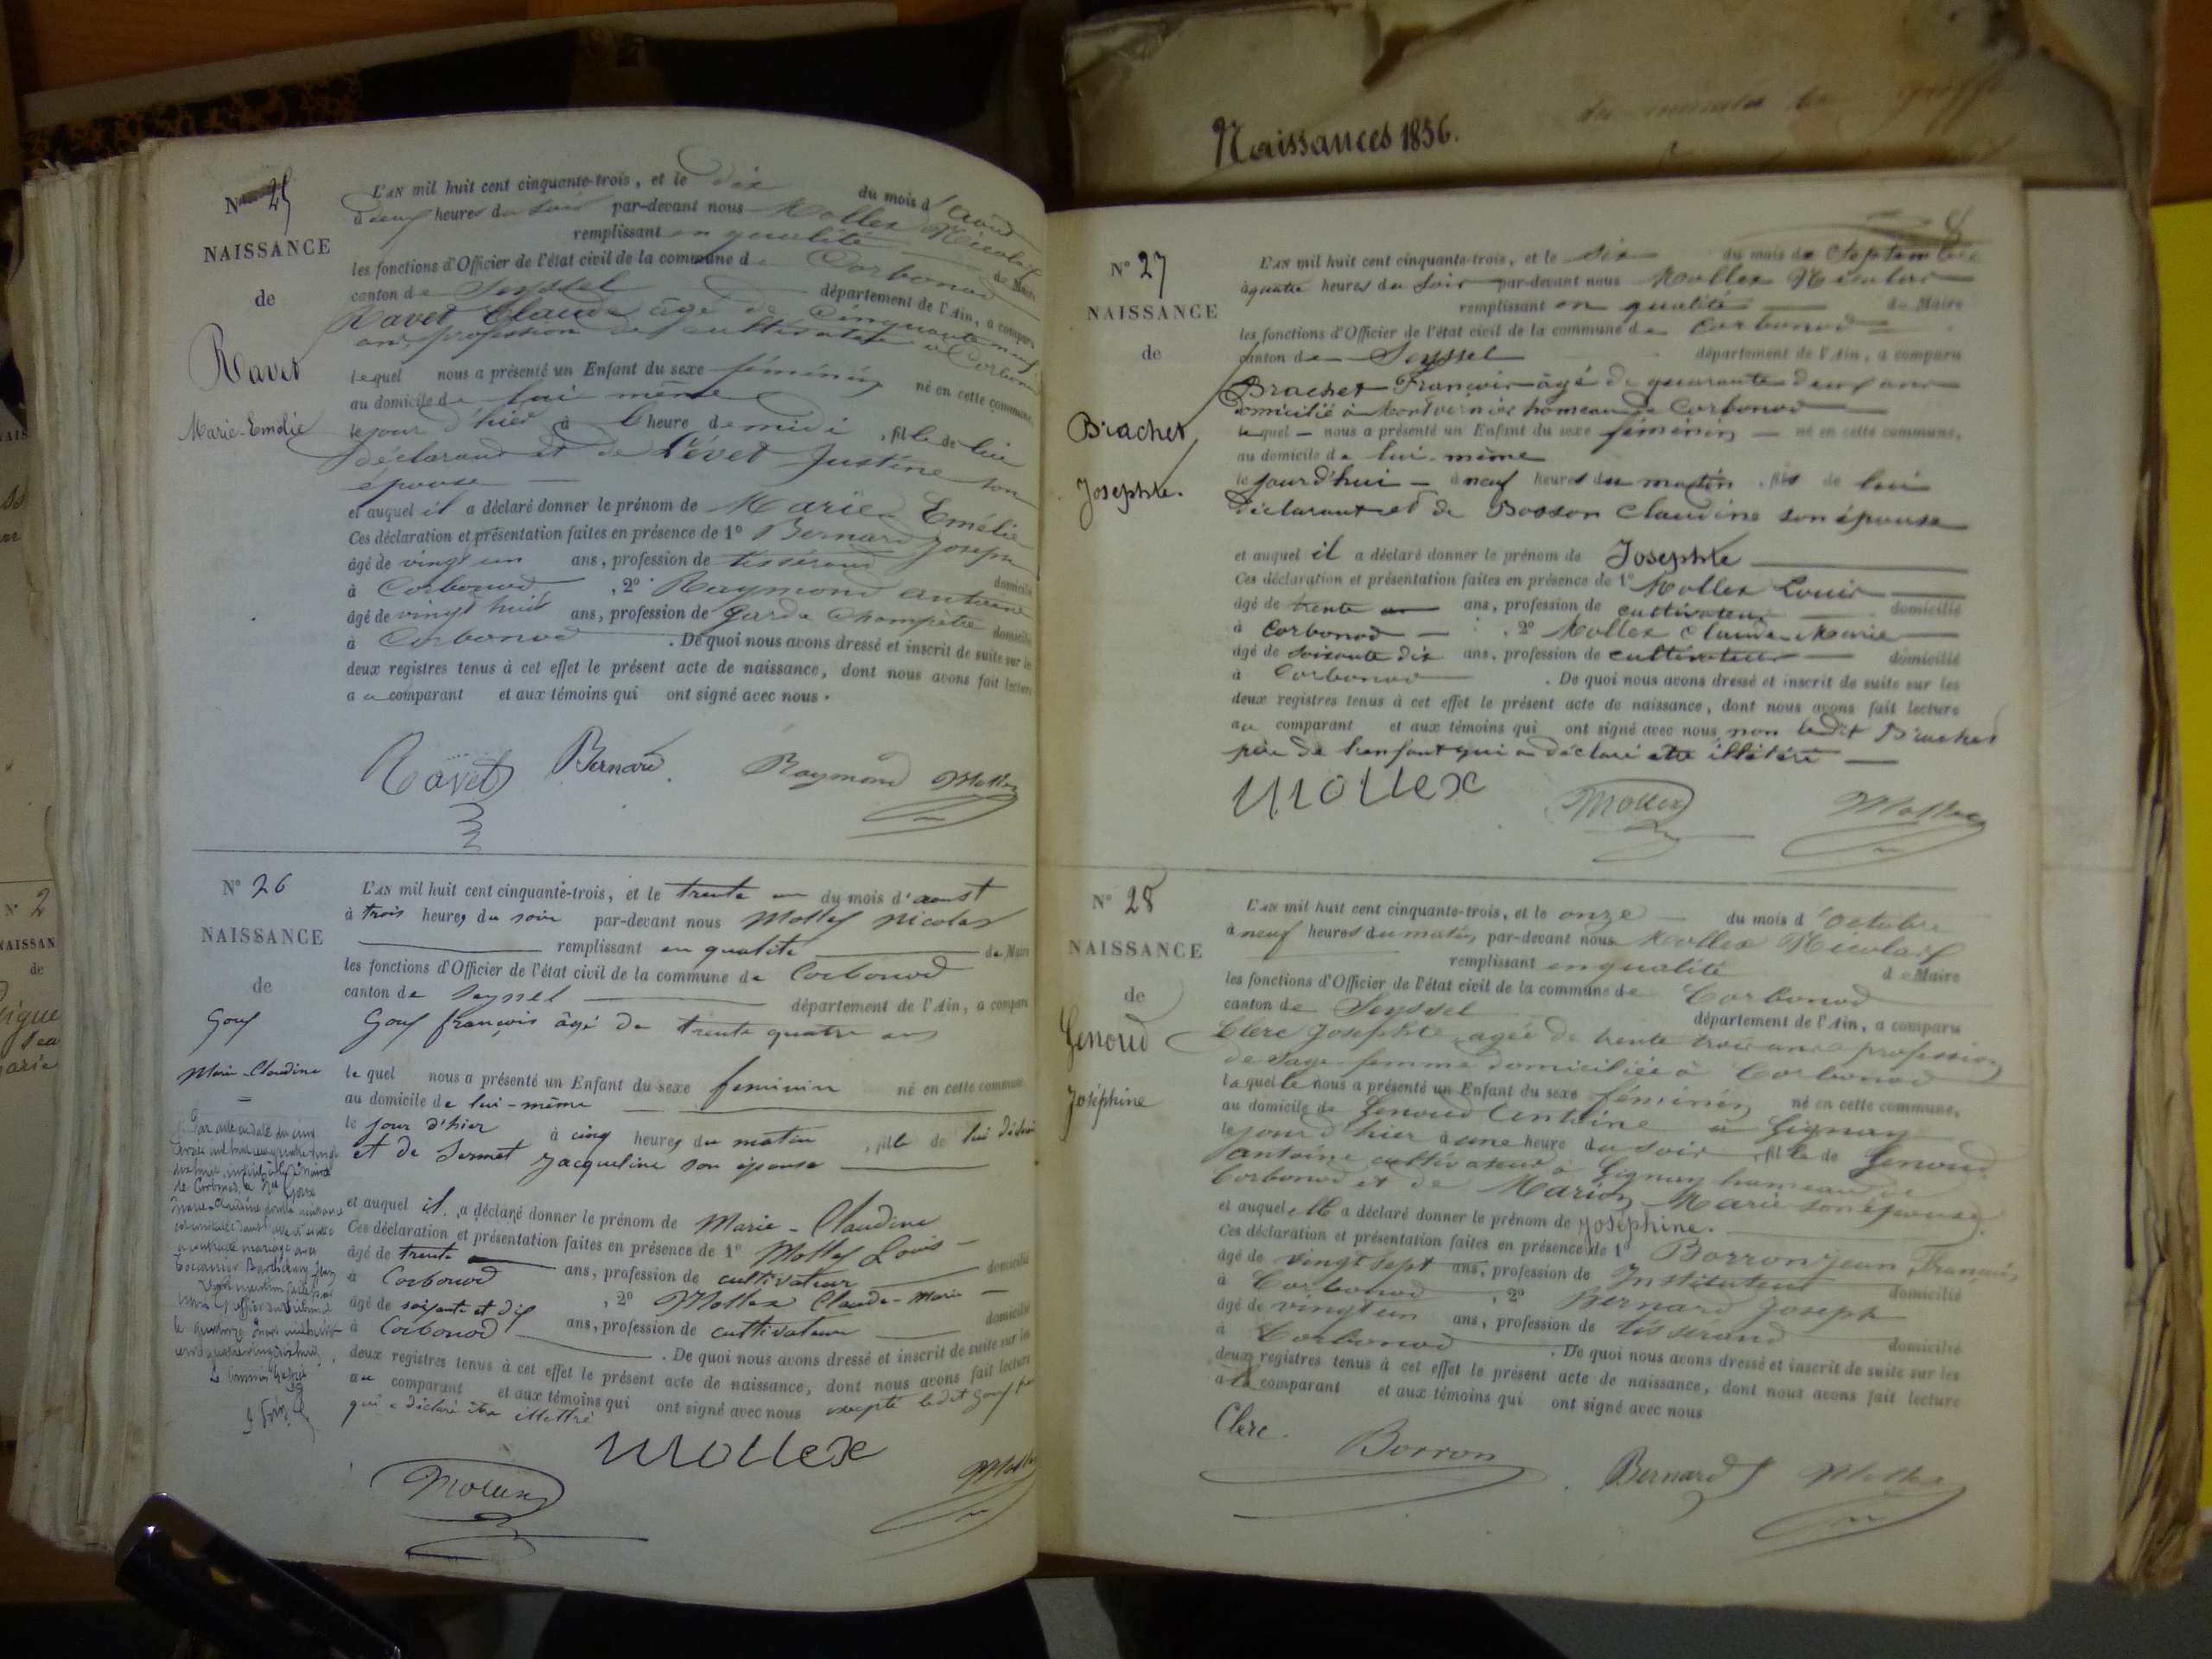 Naissances 1856.
N° 25
NAISSANCE
de
Ravet
Marie-Emélie
L'AN mil huit cent cinquante-trois, et le dix du mois d'août
à neuf heures du soir par-devant nous Mollex Nicolas
remplissant en qualité de Maire
les fonctions d'Officier de l'état civil de la commune de Corbonod
canton de Seyssel département de l'Ain, a comparu
Ravet Claude âgé de cinquante neuf
ans, profession de cultivateur à Corbonod
lequel nous a présenté un Enfant du sexe féminin né en cette commune,
au domicile de lui même
le jour d'hier à heure de midi, fille de lui
déclarant et de Févet Justine son
épouse
et auquel il a déclaré donner le prénom de Marie Emélie
Ces déclaration et présentation faites en présence de 1° Bernard Joseph
âgé de vingt un ans, profession de tisserand domicilié
à Corbonod, 2° Raymond antoine
âgé de vingt huit ans, profession de Garde Champêtre domicilié
à Corbonod. De quoi nous avons dressé et inscrit de suite sur les
deux registres tenus à cet effet le présent acte de naissance, dont nous avons fait lecture
au comparant et aux témoins qui ont signé avec nous.
Ravet Bernard. Raymond Mollex
N° 26
NAISSANCE
de
Gouf
Marie-Claudine
L'AN mil huit cent cinquante-trois, et le trente un du mois d'aoust
à trois heures du soir par-devant nous Mollex Nicolas
remplissant en qualité de Maire
les fonctions d'Officier de l'état civil de la commune de Corbonod
canton de Seyssel département de l'Ain, a comparu
Gouf françois âgé de trente quatre ans
lequel nous a présenté un Enfant du sexe feminin né en cette commune
au domicile de lui-même
le jour d'hier à cinq heures du matin, fille de lui déclarant
et de Sermet Jacqueline son épouse
et auquel il a déclaré donner le prénom de Marie-Claudine
Ces déclaration et présentation faites en présence de 1° Mollex Louis
âgé de trente ans, profession de cultivateur domicilié
à Corbonod, 2° Mollex Claude-Marie
âgé de soixante et dix ans, profession de cultivateur domicilié
à Corbonod. De quoi nous avons dressé et inscrit de suite sur les
deux registres tenus à cet effet le présent acte de naissance, dont nous avons fait lecture
au comparant et aux témoins qui ont signé avec nous excepté ledit Gouf
qui a déclaré être illettré
mollex
Mollex Mollex
N° 27
NAISSANCE
de
Brachet
Josephte.
8
L'AN mil huit cent cinquante-trois, et le six du mois de Septembre
à quatre heures du soir par-devant nous Mollex Nicolas
remplissant en qualité de Maire
les fonctions d'Officier de l'état civil de la commune de Corbonod
canton de Seyssel département de l'Ain, a comparu
Brachet François âgé de quarante deux ans
domicilié à hameau de Corbonod
lequel nous a présenté un Enfant du sexe féminin né en cette commune,
au domicile de lui-même
le jourd'hui à neuf heures du matin, fils de lui
déclarant et de Bosson Claudine son épouse
et auquel il a déclaré donner le prénom de Josephte
Ces déclaration et présentation faites en présence de 1° Mollex Louis
âgé de trente ans, profession de cultivateur domicilié
à Corbonod, 2° Mollex Claude Marie
âgé de soixante dix ans, profession de cultivateur domicilié
à Corbonod. De quoi nous avons dressé et inscrit de suite sur les
deux registres tenus à cet effet le présent acte de naissance, dont nous avons fait lecture
au comparant et aux témoins qui ont signé avec nous non ledit Brachet
père de l'enfant qui a déclaré être illétéré
mollex Mollex Mollex
N° 28
NAISSANCE
de
Genoud
Joséphine
L'AN mil huit cent cinquante-trois, et le onze du mois d'octobre
à neuf heures du matin par-devant nous Mollex Nicolas
remplissant en qualité de Maire
les fonctions d'Officier de l'état civil de la commune de Corbonod
canton de Seyssel département de l'Ain, a comparu
Clerc Josephte agée de trente trois ans profession
de sage-femme domiciliée à Corbonod
laquelle nous a présenté un Enfant du sexe féminin né en cette commune,
au domicile de Genoud Antoine à Gignay
le jour d'hier à une heure du soir, fille de Genoud
Antoine cultivateur à Gignay hameau de
Corbonod et de Marion Marie son épouse
et auquel elle a déclaré donner le prénom de Joséphine.
Ces déclaration et présentation faites en présence de 1° Borron Jean François
âgé de vingt sept ans, profession de Instituteur domicilié
à Corbonod, 2° Bernard Joseph
âgé de vingt un ans, profession de tisserand domicilié
à Corbonod. De quoi nous avons dressé et inscrit de suite sur les
deux registres tenus à cet effet le présent acte de naissance, dont nous avons fait lecture
à la comparant et aux témoins qui ont signé avec nous
Clerc. Borron Bernard Mollex